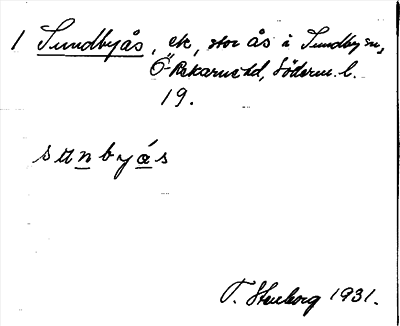 1 Sundbyås, ek, stor ås i Sundby sn,
Ö-Rekarne hd, Söderm. l.
19.
sunbyás
T. Stenborg 1931.